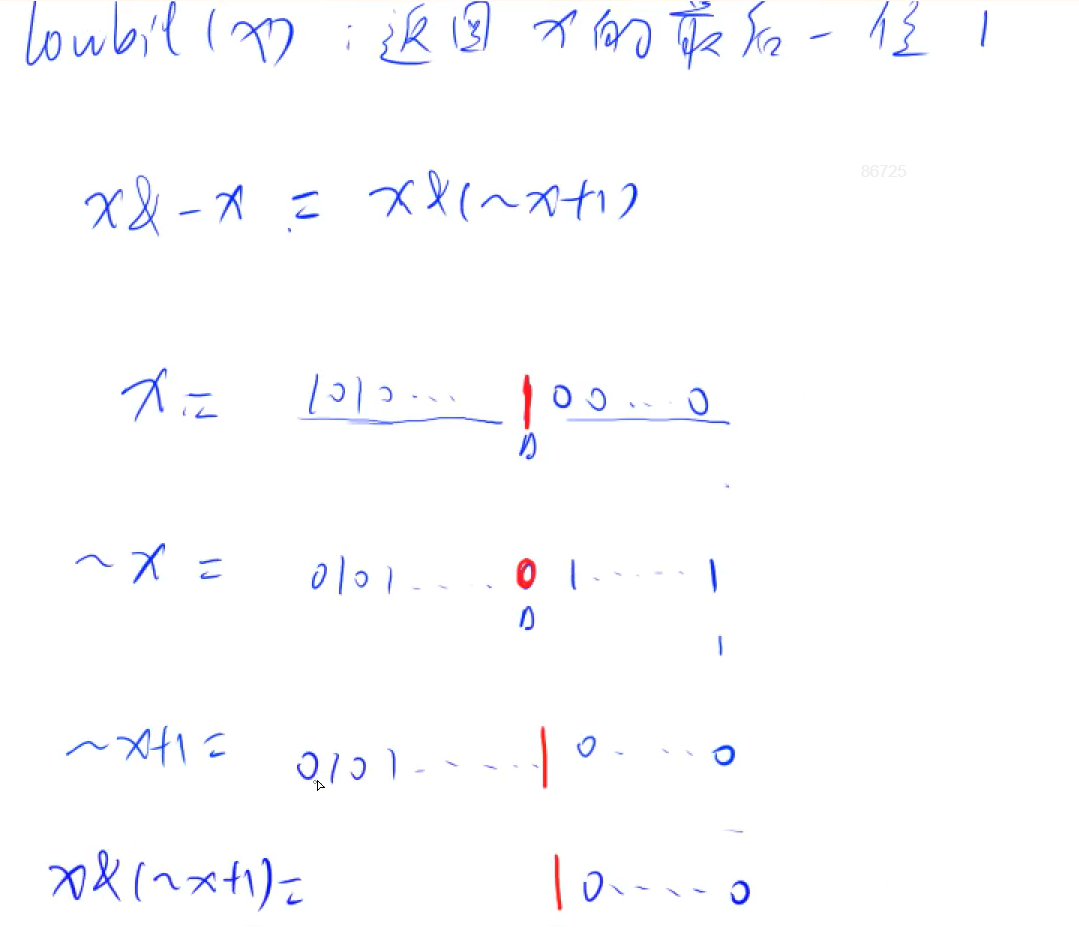 lowbit(x) : 返回 x 的最后一位 1
86725
x&-x = x&(~x+1)
x = 1010... 1 00...0
~x = 0101.... 0 1......1
1
~x+1 = 0101...... 1 0.....0
x&(~x+1) = 1 0.....0